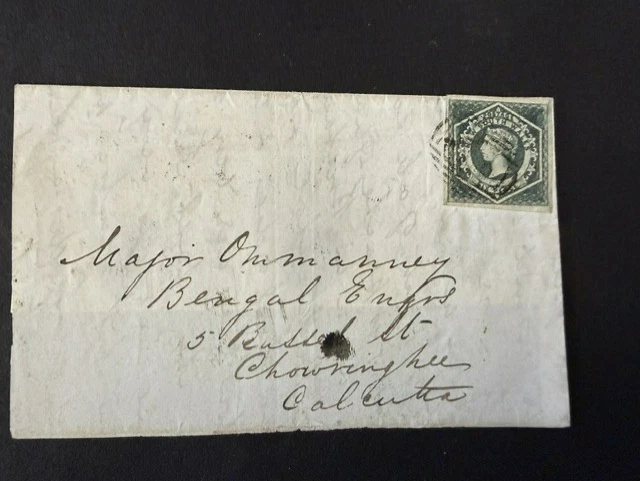 SOUTH
Major Ommanney
Bengal Engrs
5 Russel st
Chowringhee
Calcutta